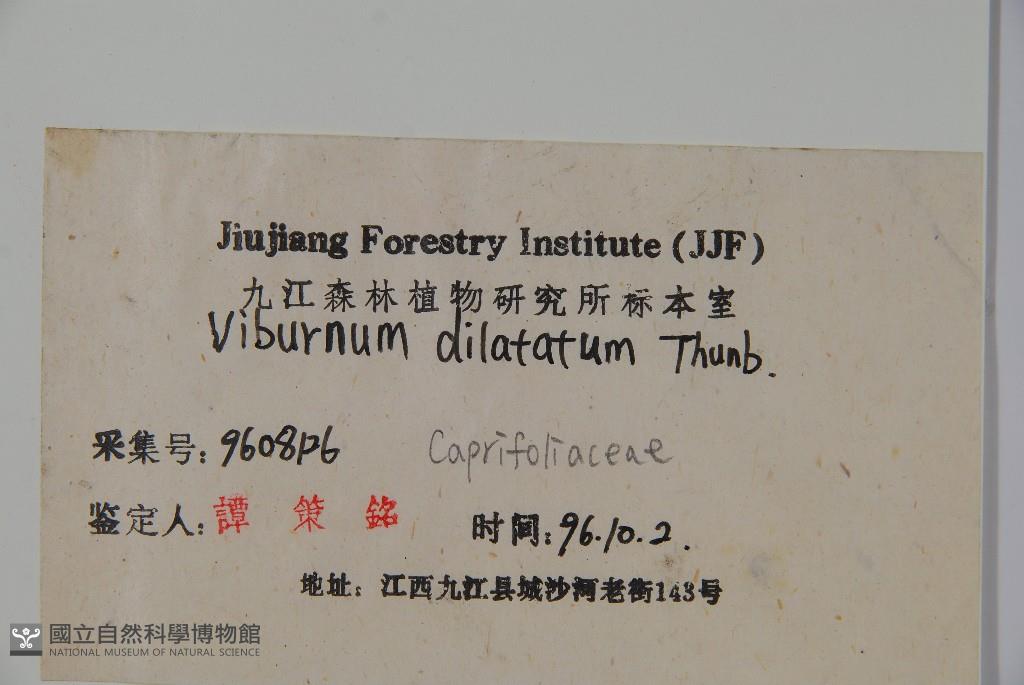 Jiujiang Forestry Institute (JJF)
九江森林植物研究所标本室
Viburnum dilatatum Thunb.
采集号: 9608126 Caprifoliaceae
鉴定人: 譚策銘 时间: 96.10.2.
地址: 江西九江县城沙河老街143号
國立自然科學博物館
NATIONAL MUSEUM OF NATURAL SCIENCE